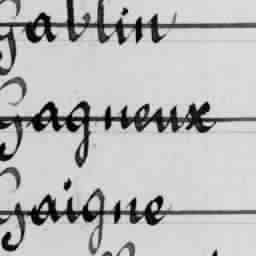 Gablin
Gagneux
Gaigne